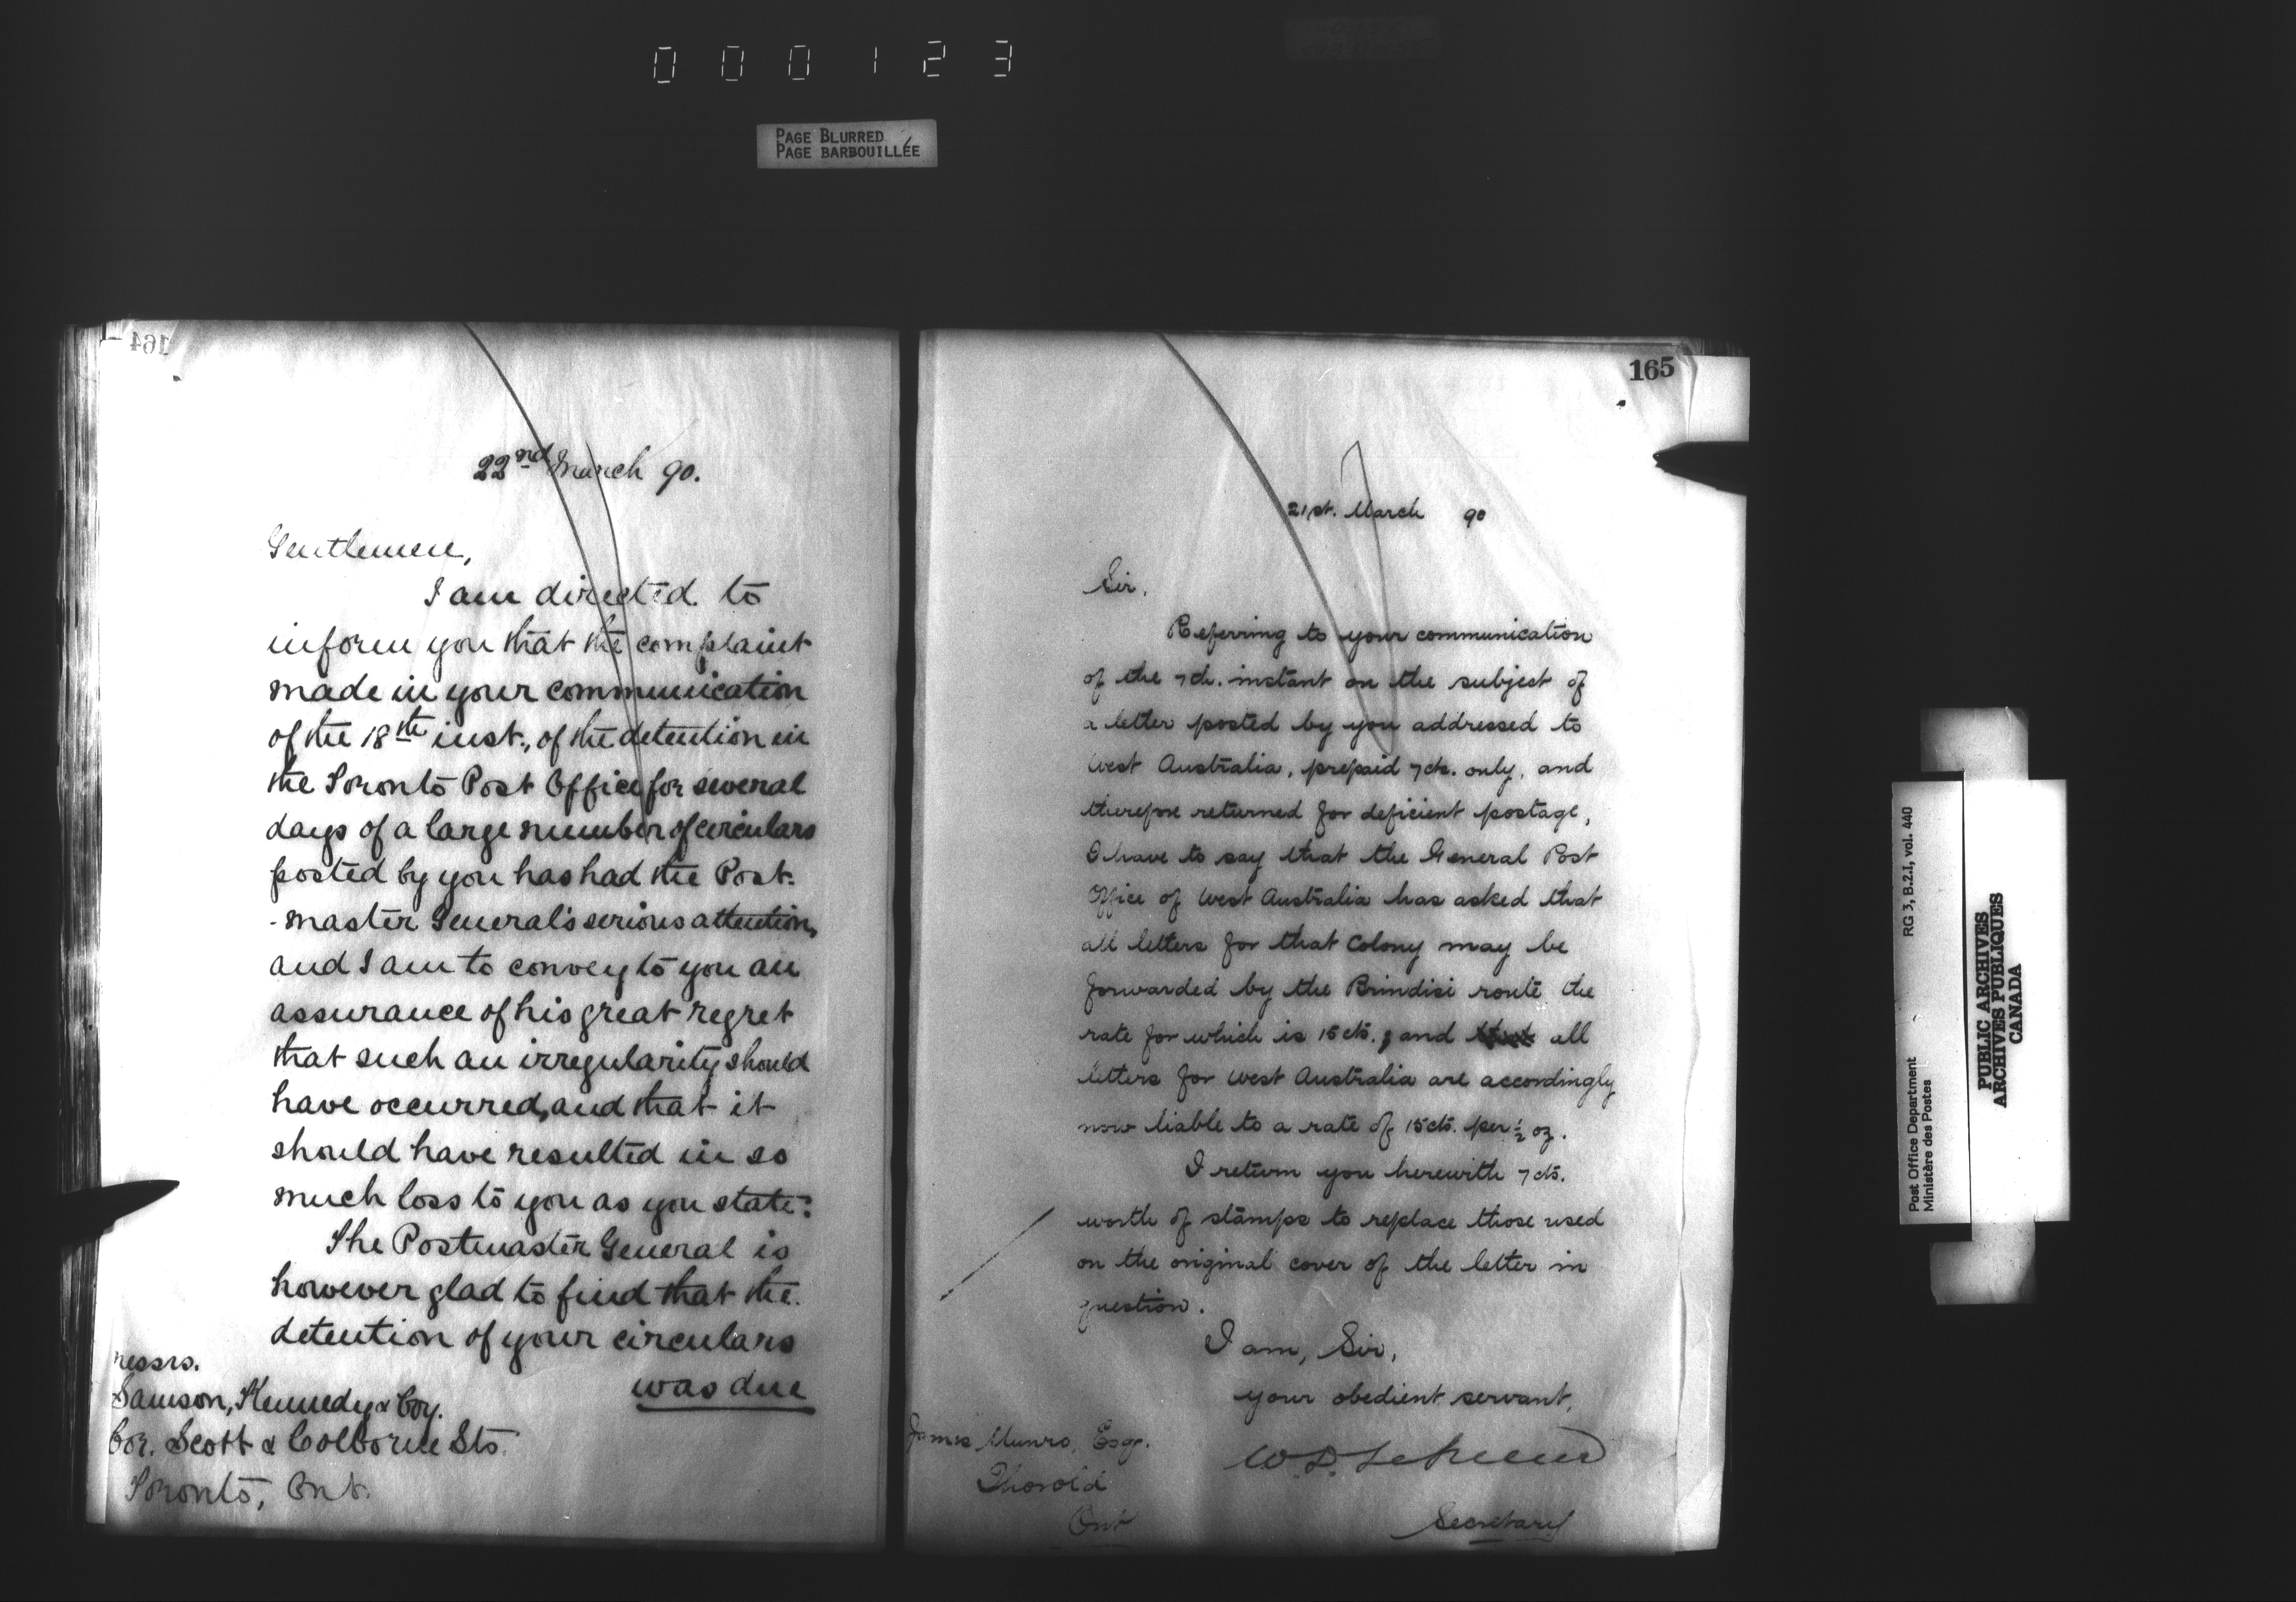 000123
PAGE BLURRED
PAGE BARBOUILLÉE
164
22nd March 90.
Gentlemen,
I am directed to
inform you that the complaint
made in your communication
of the 18th inst., of the detention in
the Toronto Post Office for several
days of a large number of circulars
posted by you has had the Post-
-master General's serious attention,
and I am to convey to you an
assurance of his great regret
that such an irregularity should
have occurred, and that it
should have resulted in so
much loss to you as you state:
The Postmaster General is
however glad to find that the
detention of your circulars
was due
Messrs.
Samson, Kennedy & Coy.
Cor. Scott & Colborne Sts.
Toronto, Ont.
165
21st. March 90
Sir,
Referring to your communication
of the 7th. instant on the subject of
a letter posted by you addressed to
West Australia, prepaid 7cts. only, and
therefore returned for deficient postage,
I have to say that the General Post
Office of West Australia has asked that
all letters for that Colony may be
forwarded by the Brindisi route the
rate for which is 15 cts.; and all
letters for West Australia are accordingly
now liable to a rate of 15 cts. per ½ oz.
I return you herewith 7 cts.
worth of stamps to replace those used
on the original cover of the letter in
question.
I am, Sir,
your obedient servant,
James Munro, Esqr.
Thorold
Ont
Secretary
Post Office Department RG 3, B.2.I, vol. 440
Ministère des Postes
PUBLIC ARCHIVES
ARCHIVES PUBLIQUES
CANADA